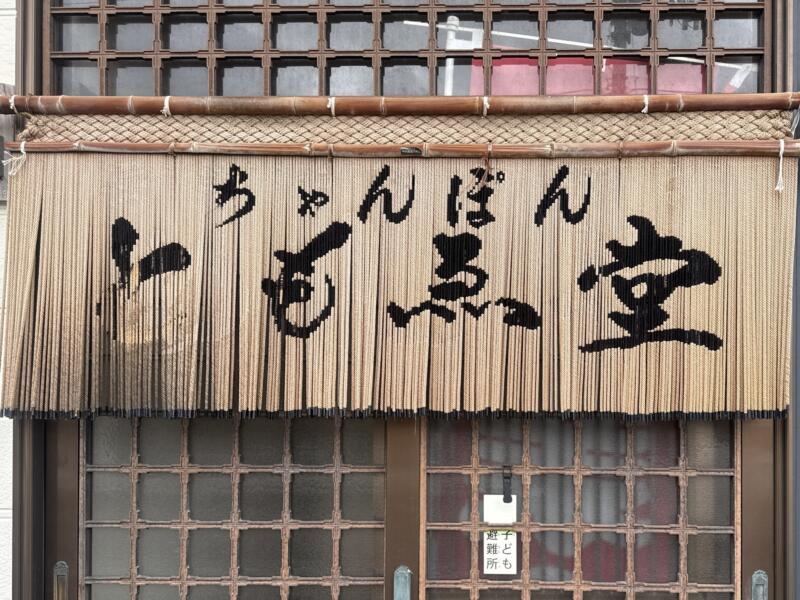 ちゃんぽん
ともゑ堂
子ども
避難所